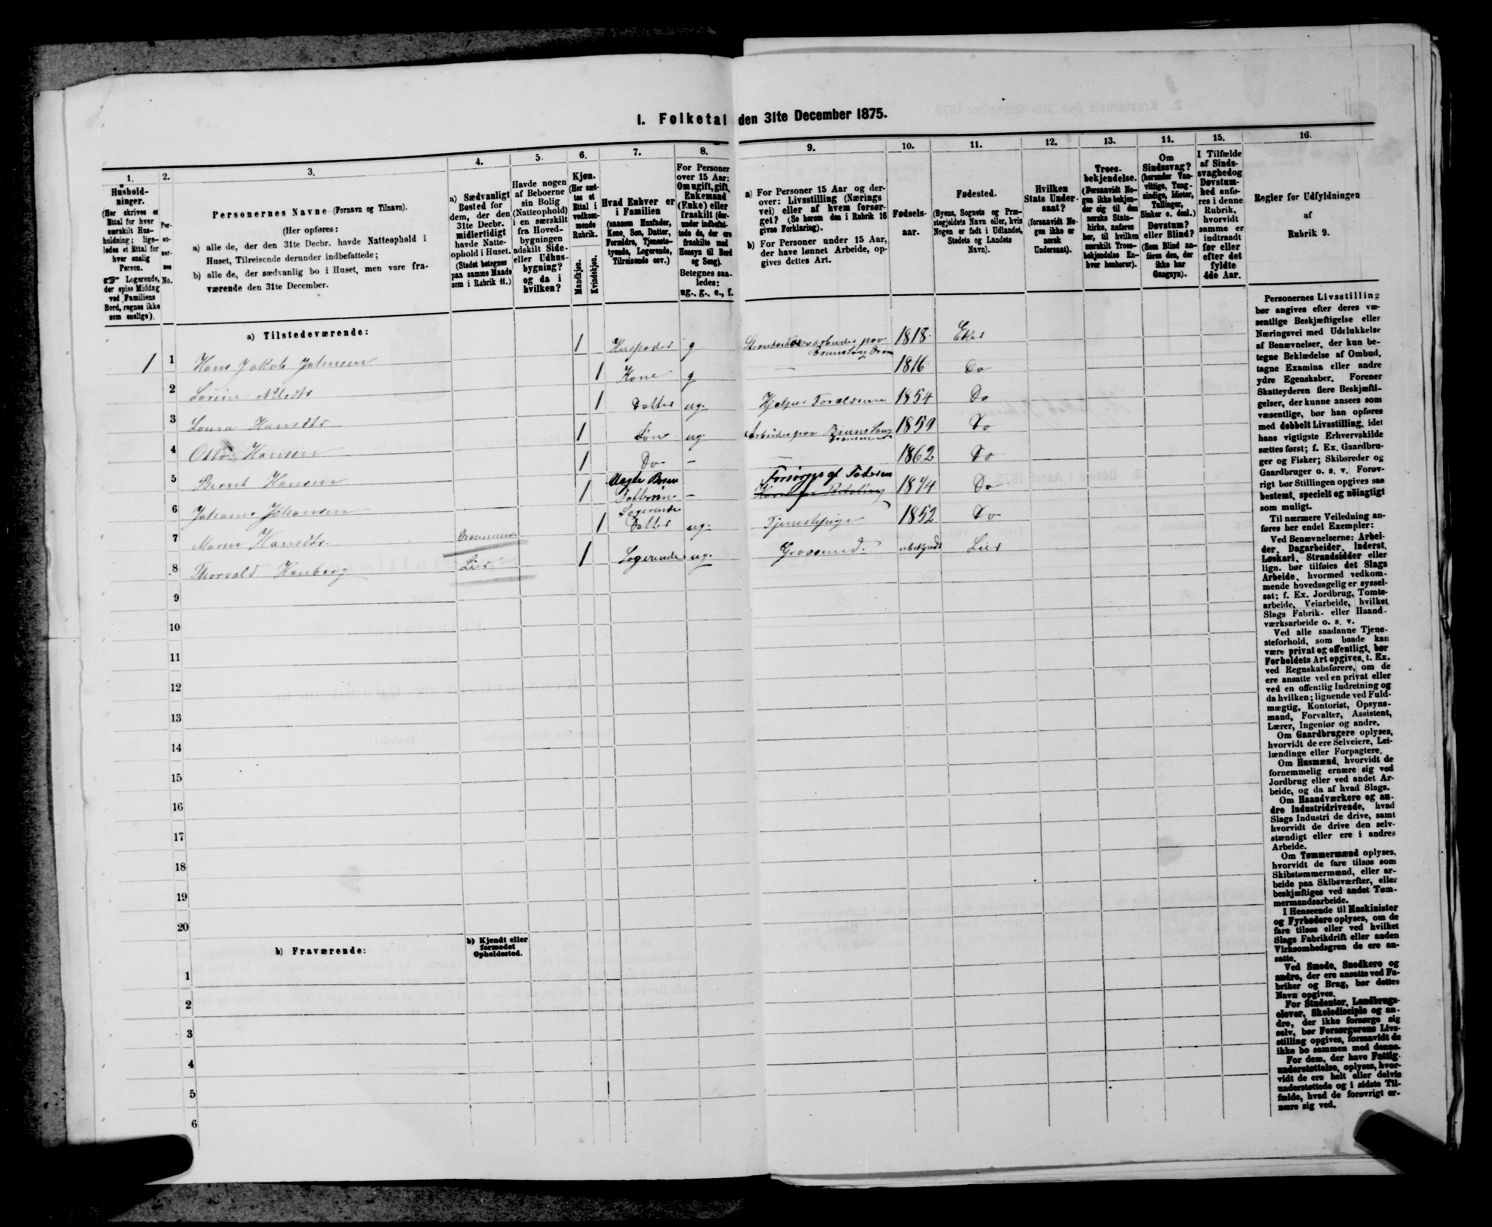 I. Folketal den 31te December 1875.
1.
Hushold-
ninger.
(Her skrives et
Ettal for hver
særskilt Hus-
holdning; lige-
ledes et Ettal for
hver enslig
Person.
Logerende,
der spise Middag
ved Familiens
Bord, regnes ikke
som enslige).
2.
Per-
so-
ner-
nes
No.
3.
Personernes Navne (Fornavn og Tilnavn).
(Her opføres:
a) alle de, der den 31te Decbr. havde Natteophold i
Huset, Tilreisende derunder indbefattede;
b) alle de, der sædvanlig bo i Huset, men vare fra-
værende den 31te December.
4.
a) Sædvanligt
Bosted for
dem, der den
31te Decbr.
midlertidigt
havde Natte-
ophold i Huset.
(Stedet betegnes
paa samme Maade
som i Rubrik 11.)
5.
Havde nogen
af Beboerne
sin Bolig
(Natteophold)
i en særskilt
fra Hoved-
bygningen
adskilt Side-
eller Udhus-
bygning?
og da i
hvilken?
6.
Kjøn.
(Her sæt-
tes et
Ettal i
vedkom-
mende
Rubrik.
Mandkjøn.
Kvindekjøn.
7.
Hvad Enhver er
i Familien
(saasom Husfader,
Kone, Søn, Datter,
Forældre, Tjeneste-
tyende, Logerende,
Tilreisende osv.)
8.
For Personer
over 15 Aar:
Om ugift, gift,
Enkemand
(Enke) eller
fraskilt (der-
under indbefat-
tede de, der ere
fraskilte med
Hensyn til Bord
og Seng).
Betegnes saa-
ledes:
ug., g., e., f.
9.
a) For Personer 15 Aar og der-
over: Livsstilling (Nærings
vei) eller af hvem forsør-
get? (Se herom den i Rubrik 16
givne Forklaring).
b) For Personer under 15 Aar,
der have lønnet Arbeide, op-
gives dettes Art.
10.
Fødsels-
aar.
11.
Fødested.
(Byens, Sognets og Præ-
stegjeldets Navn eller, hvis
Nogen er født i Udlandet,
Stedets og Landets
Navn).
12.
Hvilken
Stats Under-
saat?
(forsaavidt No-
gen ikke er
norsk
Undersaat).
13.
Troes-
bekjendelse.
(Forsaavidt No-
gen ikke bekjen-
der sig til den
norske Stats-
kirke, anføres
her, til hvilken
særskilt Troes-
bekjendelse En-
hver henhører).
14.
Om
Sindssvag?
(herunder Van-
vittige, Tung-
sindige, Idioter,
Tullinger,
Sinker o. desl.)
Døvstum?
eller Blind?
(Som Blind an-
føres den, der
ikke har
Gangsyn).
15.
I Tilfælde
af Sinds-
svaghed og
Døvstum-
hed anfø-
res i denne
Rubrik,
hvorvidt
samme er
indtraadt
før eller
efter det
fyldte
4de Aar.
16.
Regler for Udfyldningen
af
Rubrik 9.
a) Tilstedeværende:
1 1 Hans Jakob Johnsen 1 Husfader g 1818 Eker
2 1 Kone g — 1816 Do
3 Laura Hansdtr 1 Datter ug. Hjelper Forældrene 1854 Do
4 Otto Hansen 1 Søn ug 1859 Do
5 Bernt Hansen 1 Do — — 1862 Do
6 Johannes Johansen 1 Dattersøn — Forsørges af Faderen 1874 Do
7 Maren Hansdtr. 1 Logerende Datter ug. Tjenestepige 1852 Do
8 Thorvald Lier 1 Logerende ug. Grovsmed. Lier
9
10
11
12
13
14
15
16
17
18
19
20
b) Fraværende:
b) Kjendt eller
formodet
Opholdssted.
1
2
3
4
5
6
Personernes Livsstilling
bør angives efter deres væ-
sentlige Beskjæftigelse eller
Næringsvei med Udelukkelse
af Benævnelser, der kun be-
tegne Beklædelse af Ombud,
tagne Examina eller andre
ydre Egenskaber. Forener
Skatteyderen flere Beskjæfti-
gelser, der kunne ansees som
væsentlige, bør han opføres
med dobbelt Livsstilling, idet
hans vigtigste Erhvervskilde
sættes først; f. Ex. Gaardbru-
ger og Fisker; Skibsreder og
Gaardbruger o. s. v. Forøv-
rigt bør Stillingen opgives saa
bestemt, specielt og nøiagtigt
som muligt.
Til nærmere Veiledning an-
føres her endel Exempler:
Ved Benævnelserne: Arbei-
der, Dagarbeider, Inderst,
Løskarl, Strandsidder eller
lign. bør tilføies det Slags
Arbeide, hvormed vedkom-
mende hovedsagelig er syssel-
sat; f. Ex. Jordbrug, Tomte-
arbeide, Veiarbeide, hvilket
Slags Fabrik- eller Haand-
værksarbeide o. s. v.
Ved alle saadanne Tjene-
steforhold, som baade kan
være privat og offentligt, bør
Forholdets Art opgives, t. Ex.
ved Regnskabsførere, om de
ere ansatte ved en privat eller
ved en offentlig Indretning og
da hvilken; lignende ved Fuld-
mægtig, Kontorist, Opsyns-
mand, Forvalter, Assistent,
Lærer, Ingeniør og andre.
Om Gaardbrugere oplyses,
hvorvidt de ere Selveiere, Lei-
lændinge eller Forpagtere.
Om Husmænd, hvorvidt de
fornemmelig ernære sig ved
Jordbrug eller ved andet Ar-
beide, og da af hvad Slags.
Om Haandværkere og an-
dre Industridrivende, hvad
Slags Industri de drive, samt
hvorvidt de drive den selv-
stændigt eller ere i andres
Arbeide.
Om Tømmermænd oplyses,
hvorvidt de fare tilsøs som
Skibstømmermænd, eller ar-
beide paa Skibsværfter, eller
beskjæftiges ved andet Tøm-
mermandsarbeide.
I Henseende til Maskinister
og Fyrbødere oplyses, om de
fare tilsøs eller ved hvilket
Slags Fabrikdrift eller anden
Virksomhedsgren de ere an-
satte.
Ved Smede, Snedkere og
andre, der ere ansatte ved Fa-
briker og Brug, bør dettes
Navn opgives.
For Studenter, Landbrugs-
elever, Skoledisciple og an-
dre, der ikke forsørge sig
selv, bør Forsørgerens Livs-
stilling opgives, forsaavidt de
ikke bo sammen med denne.
For dem, der have Fattig-
understøttelse, oplyses, hvor-
vidt de ere helt eller delvis
understøttede og i sidste Til-
fælde, hvad de forøvrigt er-
nære sig ved.